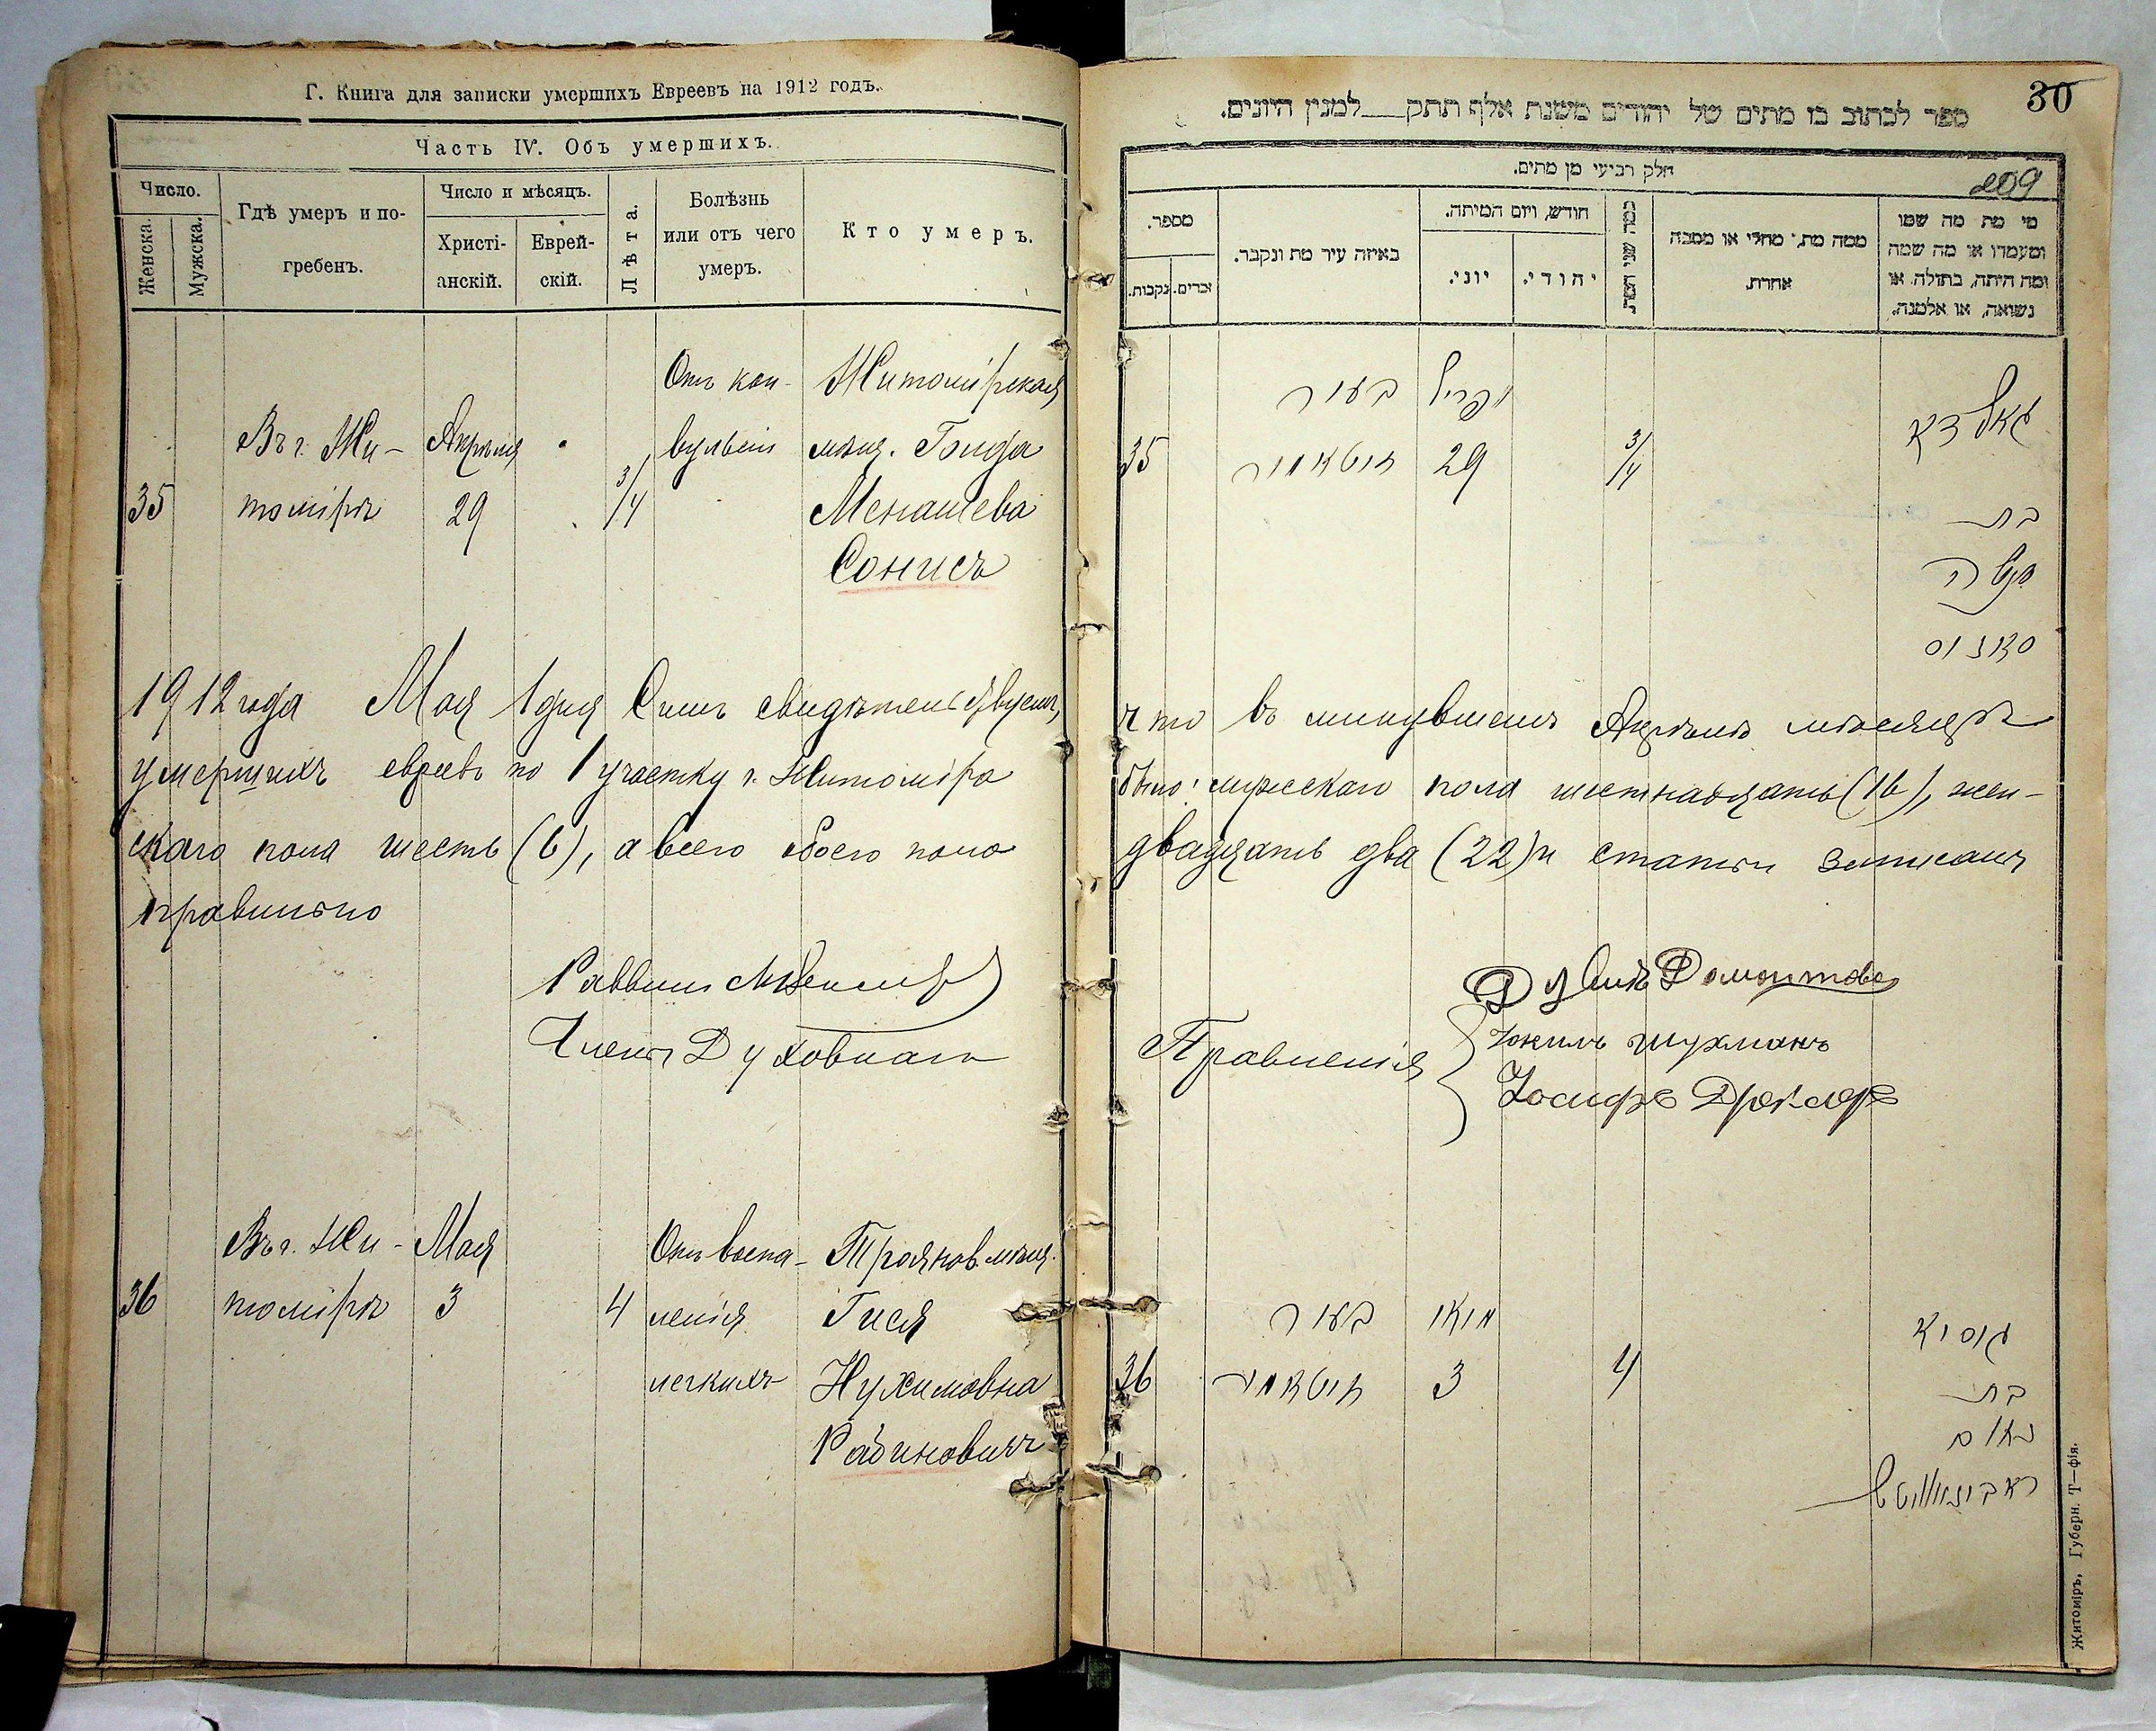 Г. Книга для записки умершихъ Евреевъ на 1912 годъ.
Часть IV. Объ умершихъ.
Число.
Женска.
Мужска.
Гдѣ умеръ и по-
гребенъ.
Число и мѣсяцъ.
Христі-
анскій.
Еврей-
скій.
Лѣта.
Болѣзнь
или отъ чего
умеръ.
Кто умеръ.
35
Въ г. Жи-
томірѣ
Апрѣля
29
3/4
Отъ кон-
вульсіи
Житомірская
мѣщ.
Менашева
Сонисъ
1912 года Мая 1 дня Симъ свидѣтельствуемъ,
умершихъ евреевъ по 1 участку г. Житоміра
скаго пола шесть (6), а всего обоего пола
правильно
Раввинъ
Члены Духовнаго
36
Въ г. Жи-
томірѣ
Мая
3
4
Отъ воспа-
ленія
легкихъ
Трояновск. мѣщ.
Гися
Нухимовна
Рабиновичъ
30
ספר לכתוב בו מתים של יהודים משנת אלף תתק למנין היונים.
209
חלק רביעי מן מתים.
מספר.
נקבות.
זכרים.
באיזה עיר מת ונקבר.
חודש, ויום המיתה.
יוני.
יהודי.
כמה שני המת.
ממה מת, מחלי או מסבה
אחרת.
מי מת מה שמו
ומעמדו או מה שמה
ומה היתה, בתולה, או
נשואה, או אלמנה.
35
בעיר
זיטאמיר
אפריל
29
3/4
בת
מנשה
סאניס
что въ минувшемъ Апрѣлѣ мѣсяцѣ
было: мужскаго пола шестнадцать (16), жен-
двадцать два (22) и статьи записаны
Правленія
Іосифъ
36
בעיר
זיטאמיר
מאי
3
4
גיסיא
בת
נחום
ראבינאוויטש
Житоміръ, Губерн. Т—фія.